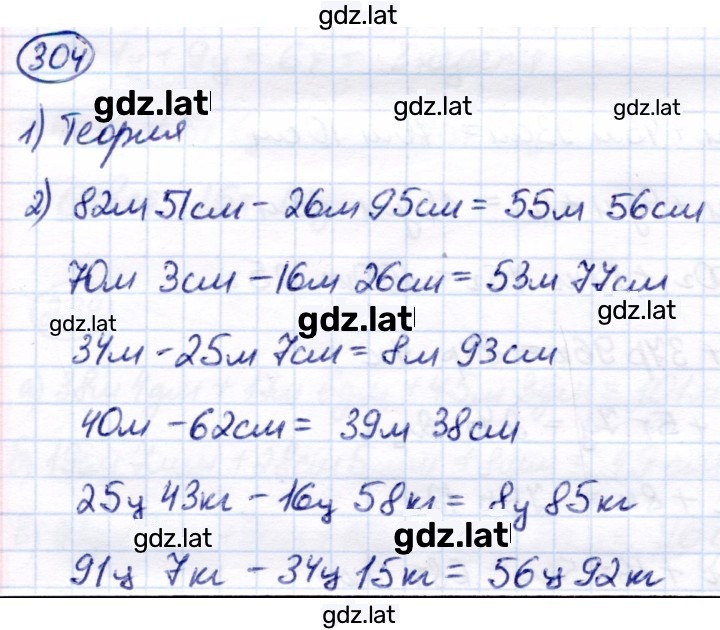 gdz.lat
304
gdz.lat gdz.lat gdz.lat
1) Теория
2) 82м 51см - 26м 95см = 55м 56см
70м 3см - 16м 26см = 53м 77см
gdz.lat gdz.lat gdz.lat
34м - 25м 7см = 8м 93см
40м - 62см = 39м 38см
25ц 43кг - 16ц 58кг = 8ц 85кг
gdz.lat gdz.lat
91ц 7кг - 34ц 15кг = 56ц 92кг
gdz.lat